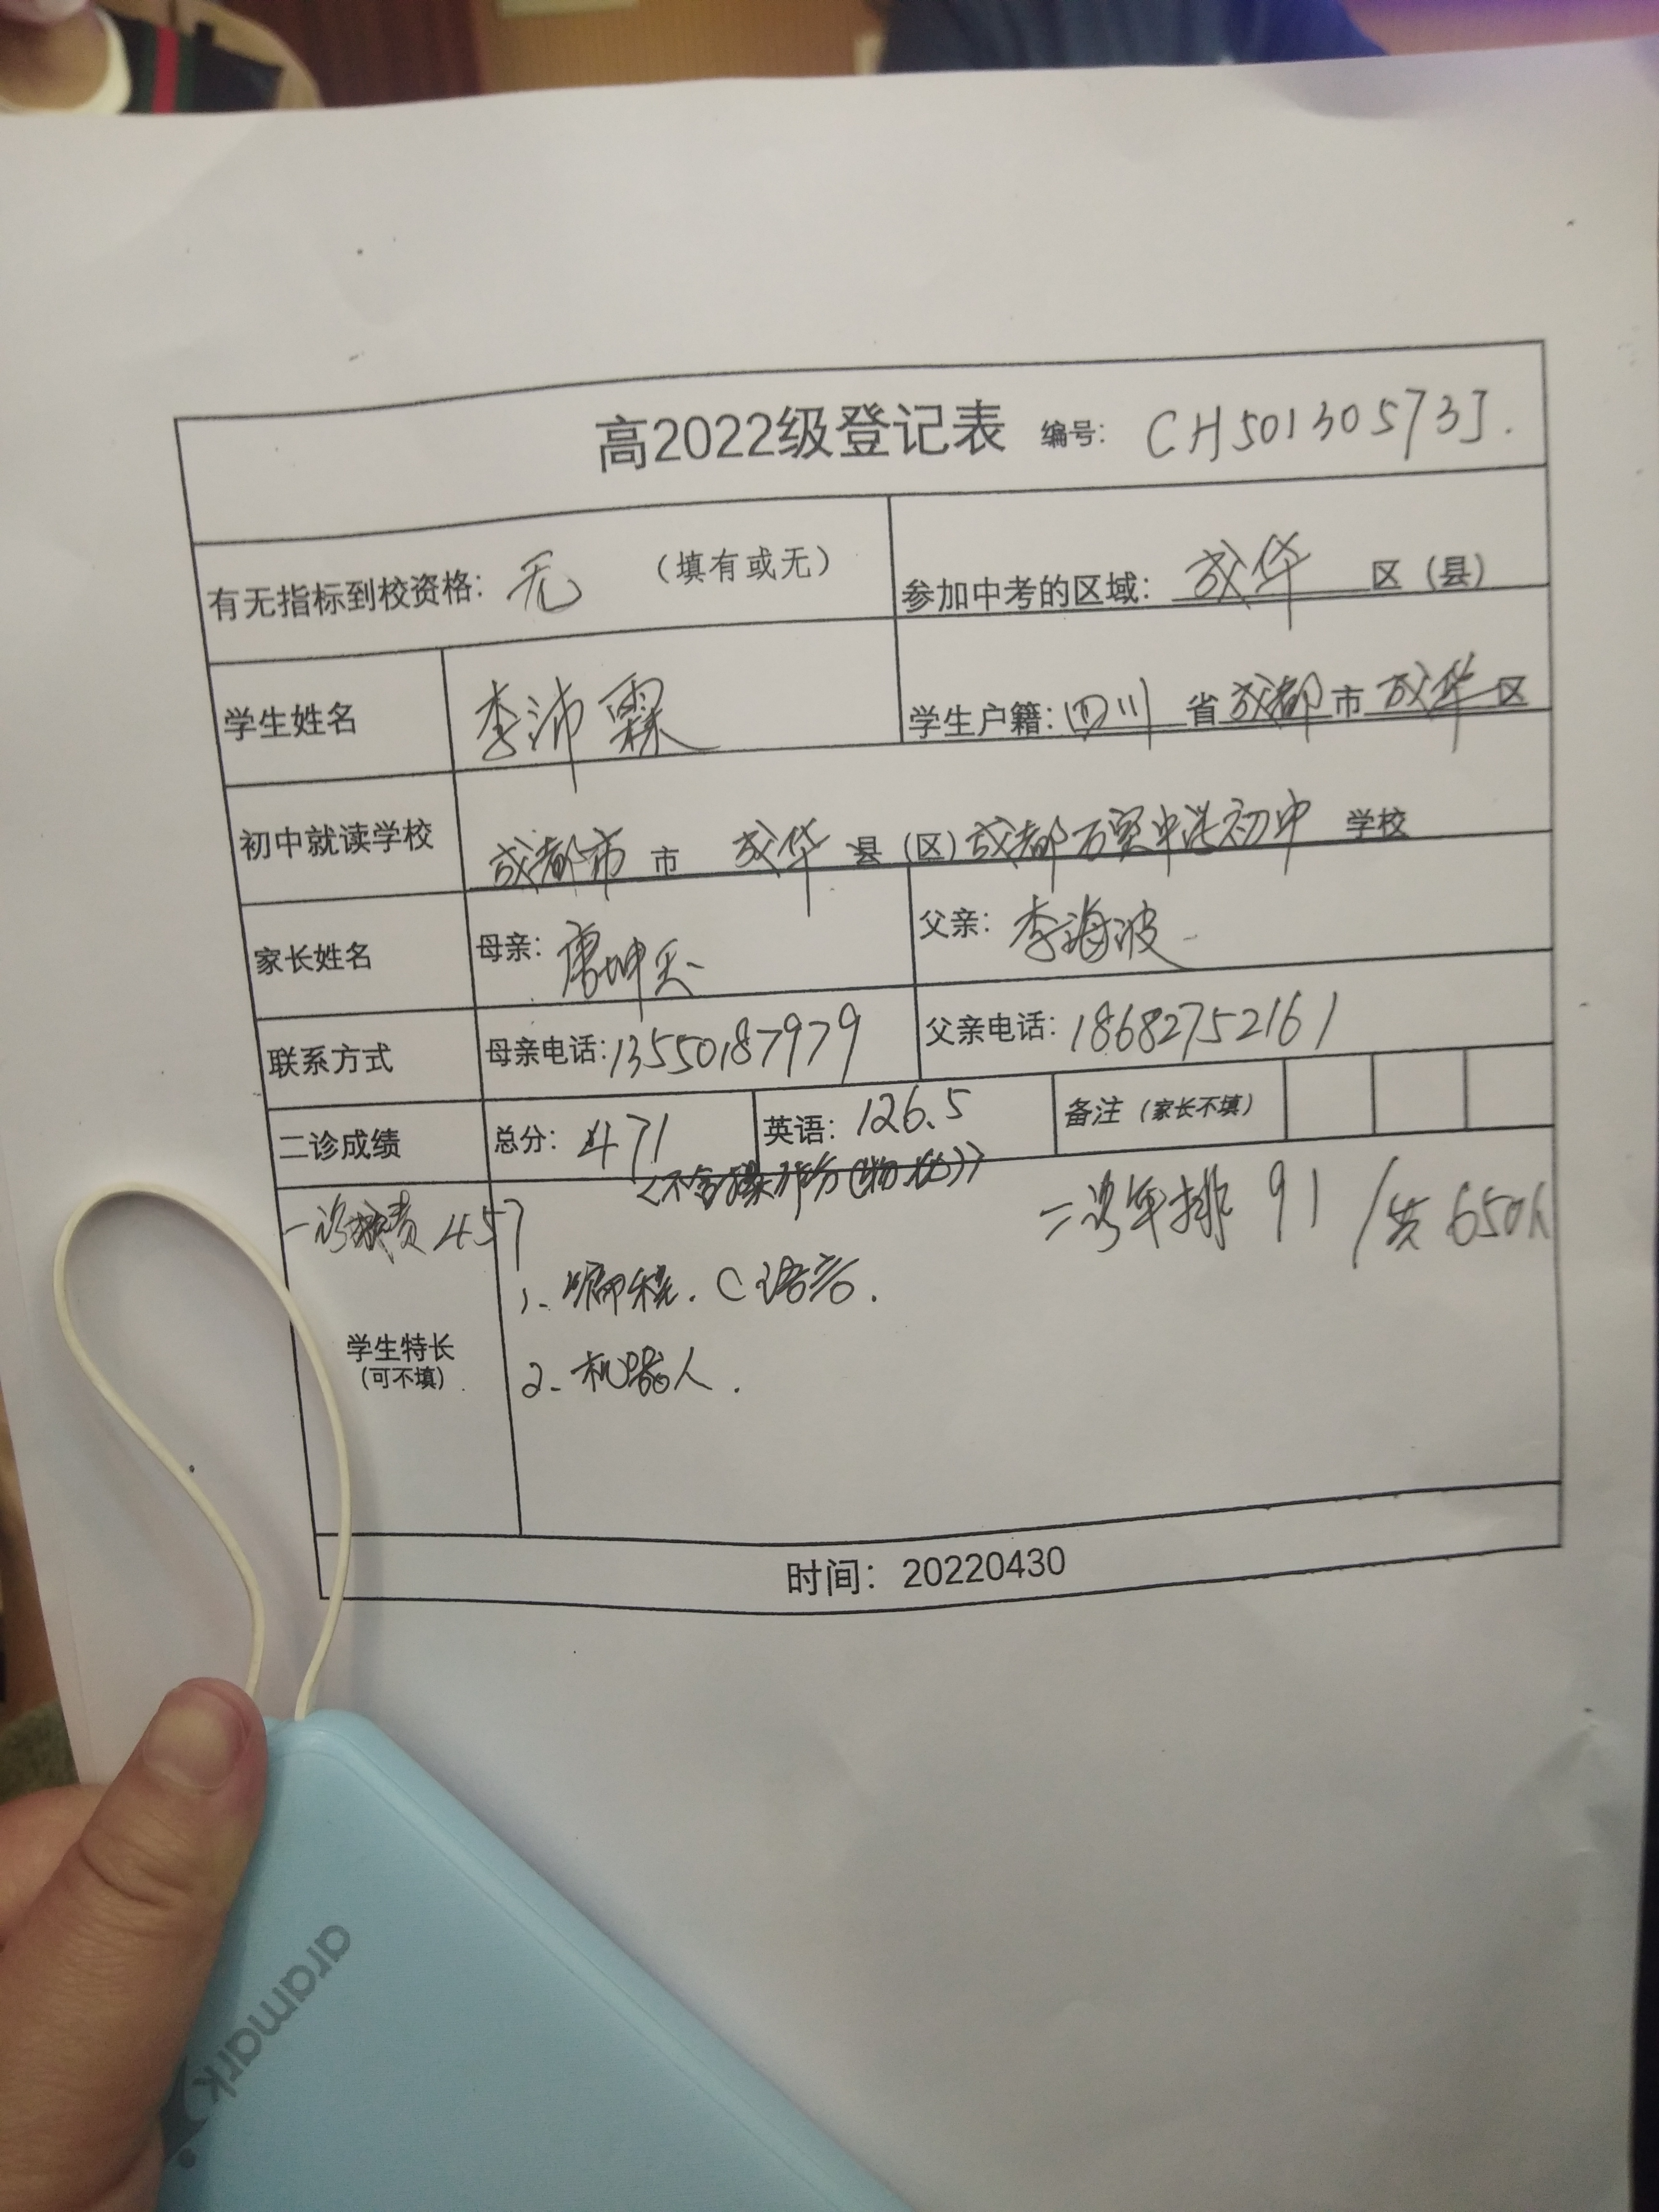 高2022级登记表 编号: CH50130573J.
有无指标到校资格: 无 (填有或无) 参加中考的区域: 成华 区 (县)
学生姓名 李沛霖 学生户籍: 四川 省 成都 市 成华 区
初中就读学校 成都市 市 成华 县 (区) 成都 初中 学校
家长姓名 母亲: 唐坤 父亲: 李海波
联系方式 母亲电话: 13550187979 父亲电话: 18682752161
二诊成绩 总分: 471 英语: 126.5 备注 (家长不填)
一诊 457 二诊年排 91 / 共 650人
学生特长
(可不填)
1. 编程. C语言.
2. 机器人.
时间: 20220430
aramark